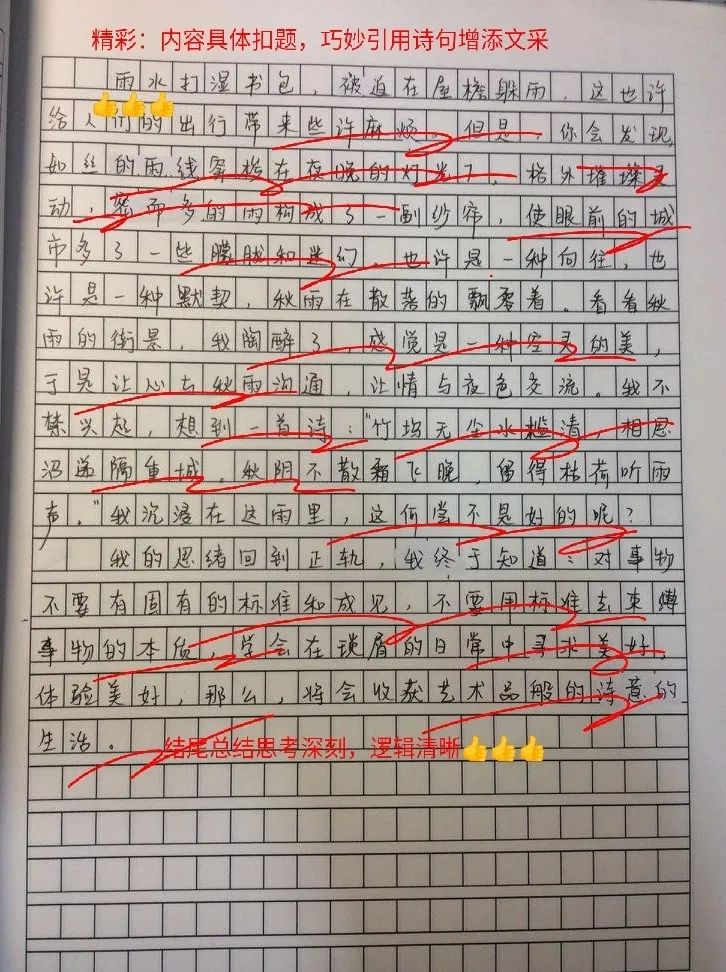 精彩：内容具体扣题，巧妙引用诗句增添文采
雨水打湿书包，被迫在屋檐躲雨，这也许
给人们的出行带来些许麻烦。但是，你会发现，
如丝的雨线穿梭在夜晚的灯光下，格外璀璨灵
动，密而多的雨构成了一副纱帘，使眼前的城
市多了一些朦胧和迷幻，也许是一种向往，也
许是一种默契，秋雨在散落的飘零着。看着秋
雨的街景，我陶醉了，感觉是一种空灵的美，
于是让心与秋雨沟通，让情与夜色交流。我不
禁兴起，想到一首诗："竹坞无尘水槛清，相思
迢递隔重城。秋阴不散霜飞晚，留得枯荷听雨
声。"我沉浸在这雨里，这何尝不是好的呢？
我的思绪回到正轨，我终于知道：对事物
不要有固有的标准和成见，不要用标准去束缚
事物的本质，学会在琐屑的日常中寻求美好，
体验美好，那么，将会收获艺术品般的诗意的
生活。
结尾总结思考深刻，逻辑清晰